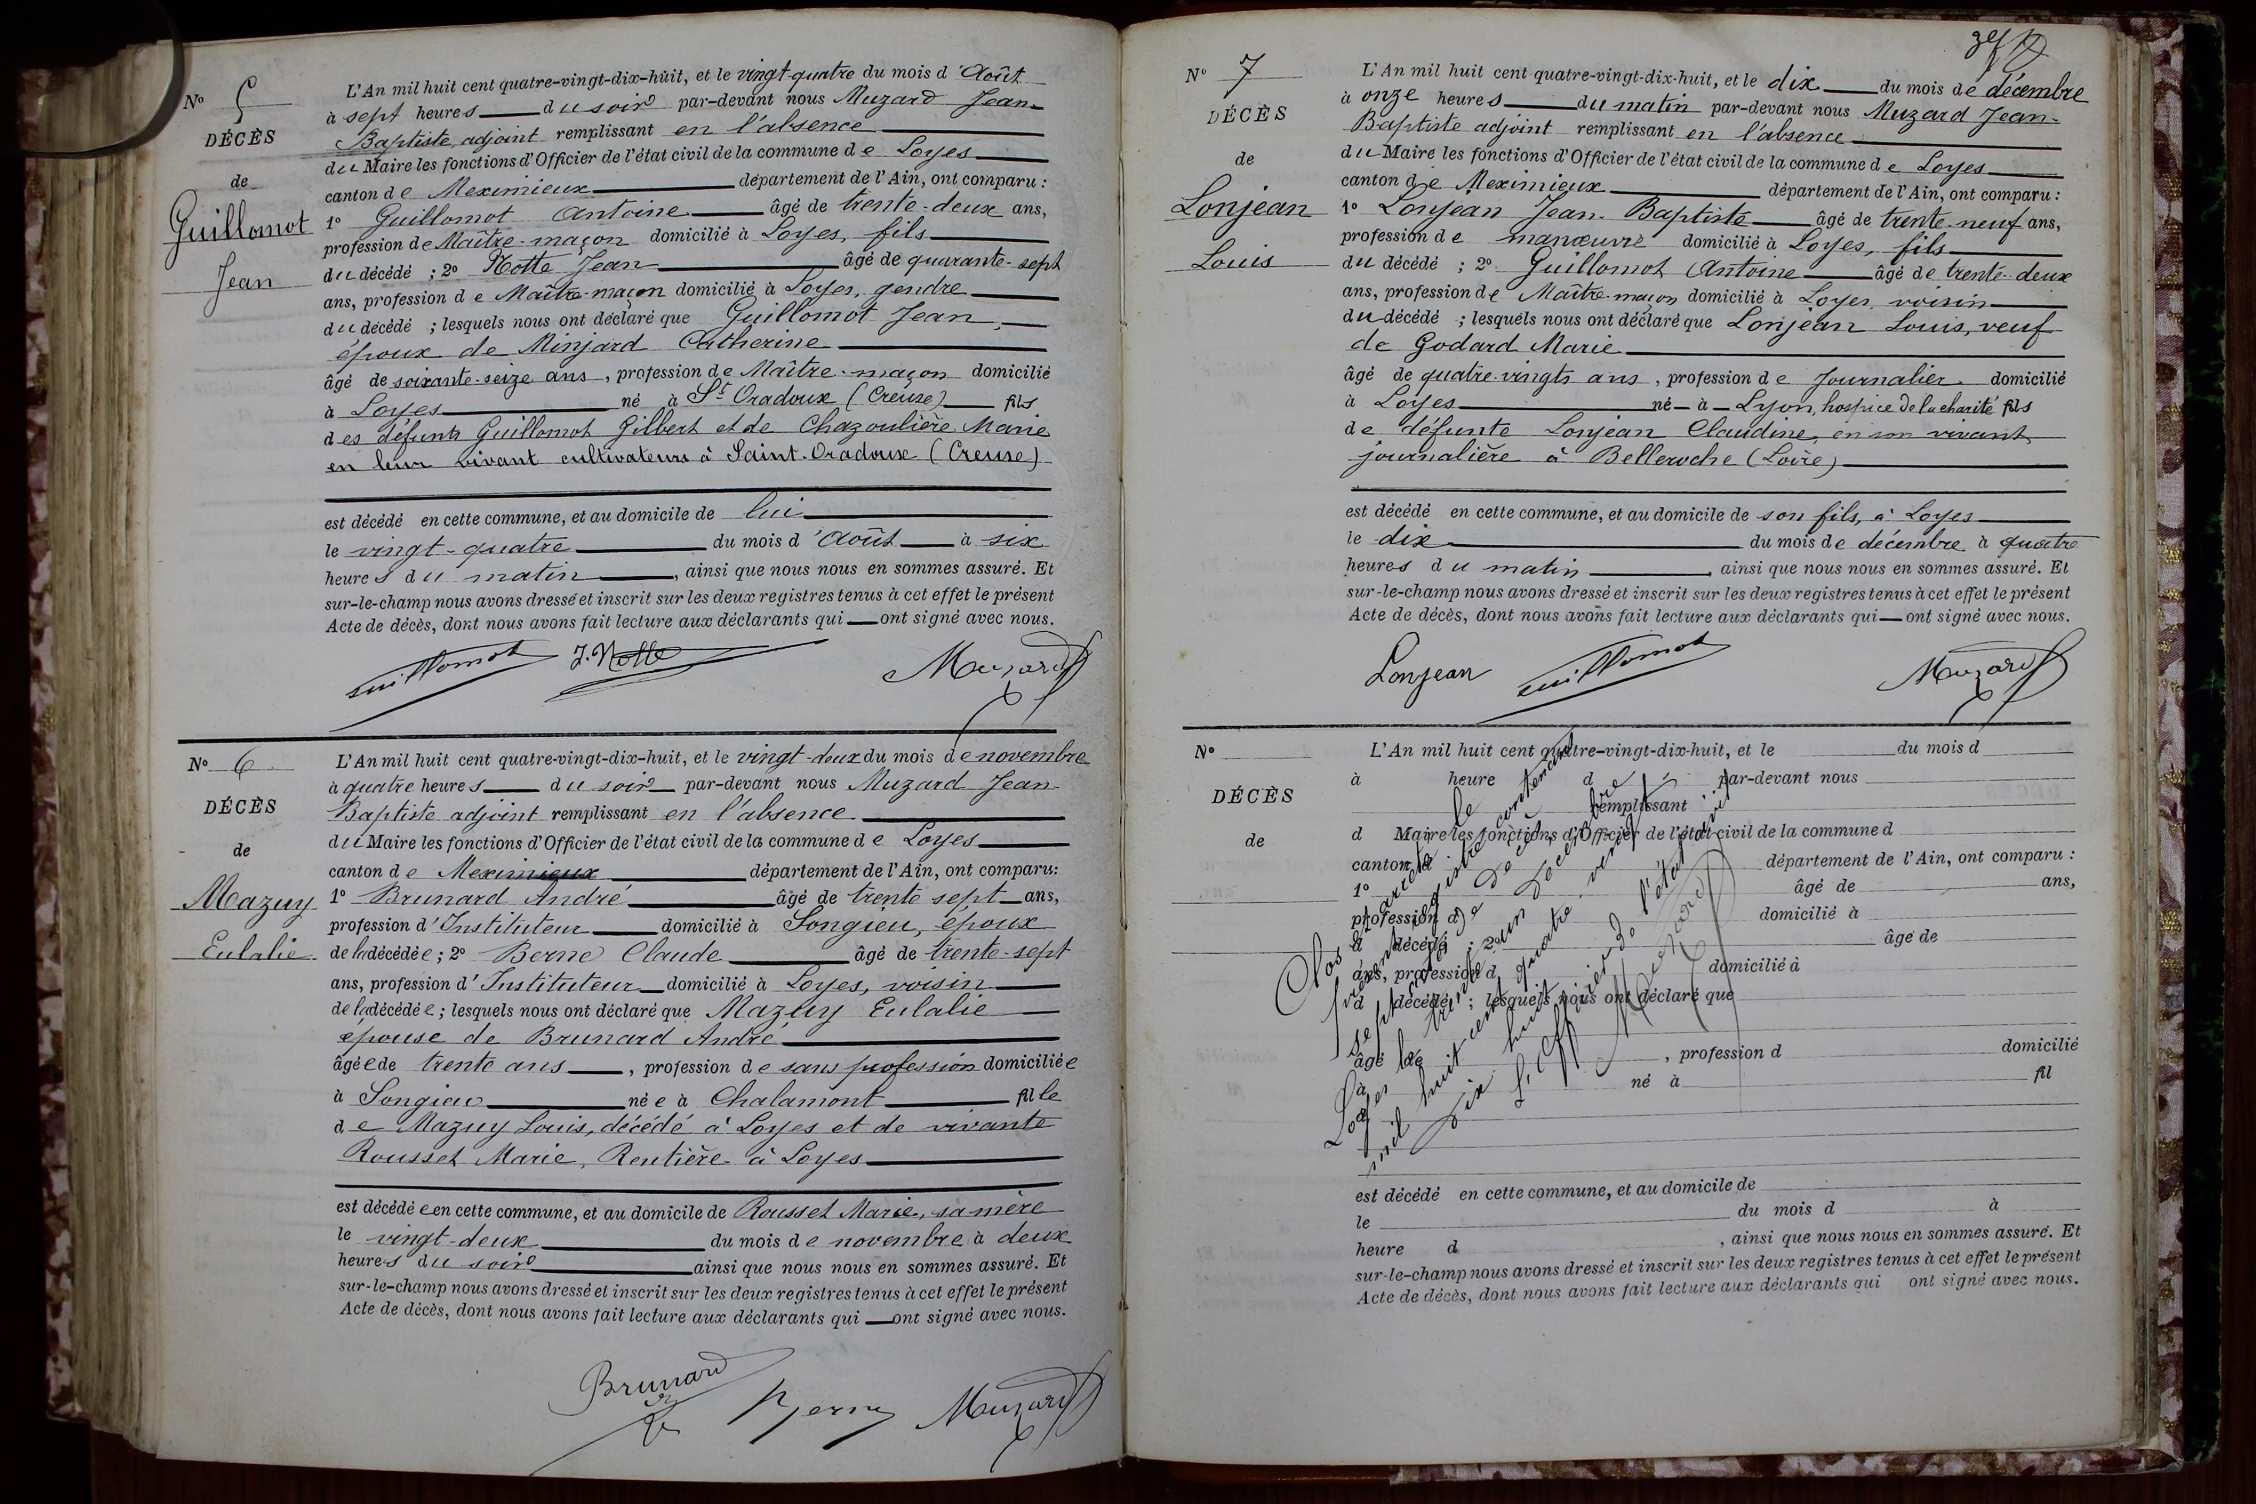 N° 5
DÉCÈS
de
Guillomot
Jean
L'An mil huit cent quatre-vingt-dix-huit, et le vingt-quatre du mois d'Août
à sept heures du soir par-devant nous Muzard Jean-
Baptiste, adjoint remplissant en l'absence
du Maire les fonctions d'Officier de l'état civil de la commune de Loyes
canton de Meximieux département de l'Ain, ont comparu :
1° Guillomot Antoine âgé de trente-deux ans,
profession de Maître-maçon domicilié à Loyes, fils
du décédé ; 2° Notte Jean âgé de quarante-sept
ans, profession de Maître-maçon domicilié à Loyes, gendre
du décédé ; lesquels nous ont déclaré que Guillomot Jean,
époux de Minjard Catherine
âgé de soixante-seize ans, profession de Maître-maçon domicilié
à Loyes né à St Oradoux (Creuse) fils
des défunts Guillomot Gilbert et de Chazoulière Marie
en leur vivant cultivateurs à Saint-Oradoux (Creuse)
est décédé en cette commune, et au domicile de lui
le vingt-quatre du mois d'Août à six
heures du matin, ainsi que nous nous en sommes assuré. Et
sur-le-champ nous avons dressé et inscrit sur les deux registres tenus à cet effet le présent
Acte de décès, dont nous avons fait lecture aux déclarants qui ont signé avec nous.
Guillomot J. Notte Muzard
N° 6
DÉCÈS
de
Mazuy
Eulalie
L'An mil huit cent quatre-vingt-dix-huit, et le vingt-deux du mois de novembre
à quatre heures du soir par-devant nous Muzard Jean-
Baptiste adjoint remplissant en l'absence
du Maire les fonctions d'Officier de l'état civil de la commune de Loyes
canton de Meximieux département de l'Ain, ont comparu:
1° Brunard André âgé de trente sept ans,
profession d'Instituteur domicilié à Songieu, époux
de la décédée ; 2° Berne Claude âgé de trente-sept
ans, profession d'Instituteur domicilié à Loyes, voisin
de la décédée ; lesquels nous ont déclaré que Mazuy Eulalie
épouse de Brunard André
âgée de trente ans, profession de sans profession domiciliée
à Songieu née à Chalamont fille
de Mazuy Louis, décédé à Loyes et de vivante
Rousset Marie, Rentière à Loyes
est décédée en cette commune, et au domicile de Rousset Marie, sa mère
le vingt-deux du mois de novembre à deux
heures du soir ainsi que nous nous en sommes assuré. Et
sur-le-champ nous avons dressé et inscrit sur les deux registres tenus à cet effet le présent
Acte de décès, dont nous avons fait lecture aux déclarants qui ont signé avec nous.
Brunard Berne Muzard
N° 7
DÉCÈS
de
Lonjean
Louis
L'An mil huit cent quatre-vingt-dix-huit, et le dix du mois de décembre
à onze heures du matin par-devant nous Muzard Jean-
Baptiste adjoint remplissant en l'absence
du Maire les fonctions d'Officier de l'état civil de la commune de Loyes
canton de Meximieux département de l'Ain, ont comparu :
1° Lonjean Jean-Baptiste âgé de trente-neuf ans,
profession de manœuvre domicilié à Loyes, fils
du décédé ; 2° Guillomot Antoine âgé de trente-deux
ans, profession de Maître-maçon domicilié à Loyes, voisin
du décédé ; lesquels nous ont déclaré que Lonjean Louis, veuf
de Godard Marie
âgé de quatre-vingts ans, profession de Journalier domicilié
à Loyes né à Lyon, hospice de la charité fils
de défunte Lonjean Claudine, en son vivant
journalière à Belleroche (Loire)
est décédé en cette commune, et au domicile de son fils, à Loyes
le dix du mois de décembre à quatre
heures du matin, ainsi que nous nous en sommes assuré. Et
sur-le-champ nous avons dressé et inscrit sur les deux registres tenus à cet effet le présent
Acte de décès, dont nous avons fait lecture aux déclarants qui ont signé avec nous.
Lonjean Guillomot Muzard
N°
DÉCÈS
de
L'An mil huit cent quatre-vingt-dix-huit, et le du mois d
à heure d par-devant nous
remplissant
d Maire les fonctions d'Officier de l'état civil de la commune d
canton d département de l'Ain, ont comparu :
1° âgé de ans,
profession d domicilié à
d décédé ; 2° âgé de
ans, profession d domicilié à
d décédé ; lesquels nous ont déclaré que
âgé de , profession d domicilié
à né à fil
d
est décédé en cette commune, et au domicile de
le du mois d à
heure d , ainsi que nous nous en sommes assuré. Et
sur-le-champ nous avons dressé et inscrit sur les deux registres tenus à cet effet le présent
Acte de décès, dont nous avons fait lecture aux déclarants qui ont signé avec nous.
Clos et arrêté le
présent registre contenant
sept actes de décès
à Loyes le trente un décembre
mil huit cent quatre vingt
dix huit
L'officier de l'état civil
Muzard